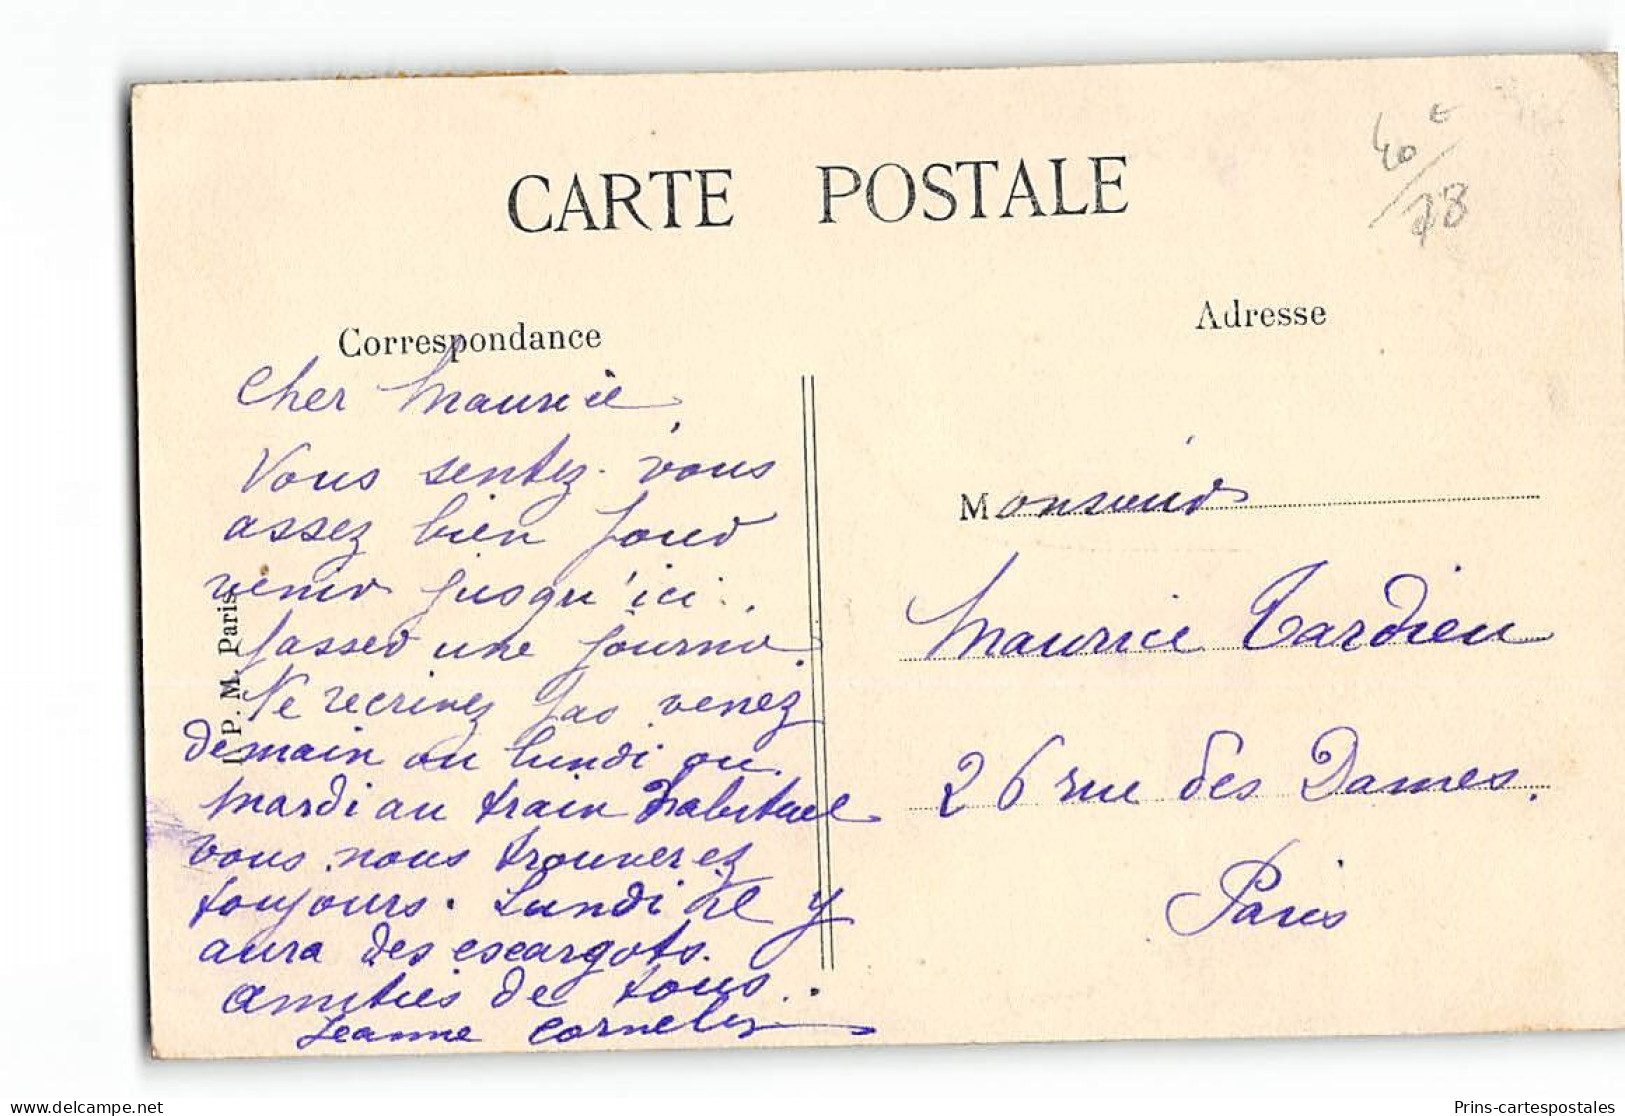 CARTE POSTALE
40 €
78
Correspondance
Adresse
Cher Maurice,
Vous sentez-vous
assez bien pour
venir jusqu'ici
passer une journée.
Ne récrivez pas venez
demain ou lundi ou
mardi au train habituel
vous nous trouverez
toujours. Lundi il y
aura des escargots.
Amitiés de tous.
Jeanne
I P. M. Paris
Monsieur
Maurice Tardieu
26 rue des Dames.
Paris
delcampe.net
Prins-cartespostales